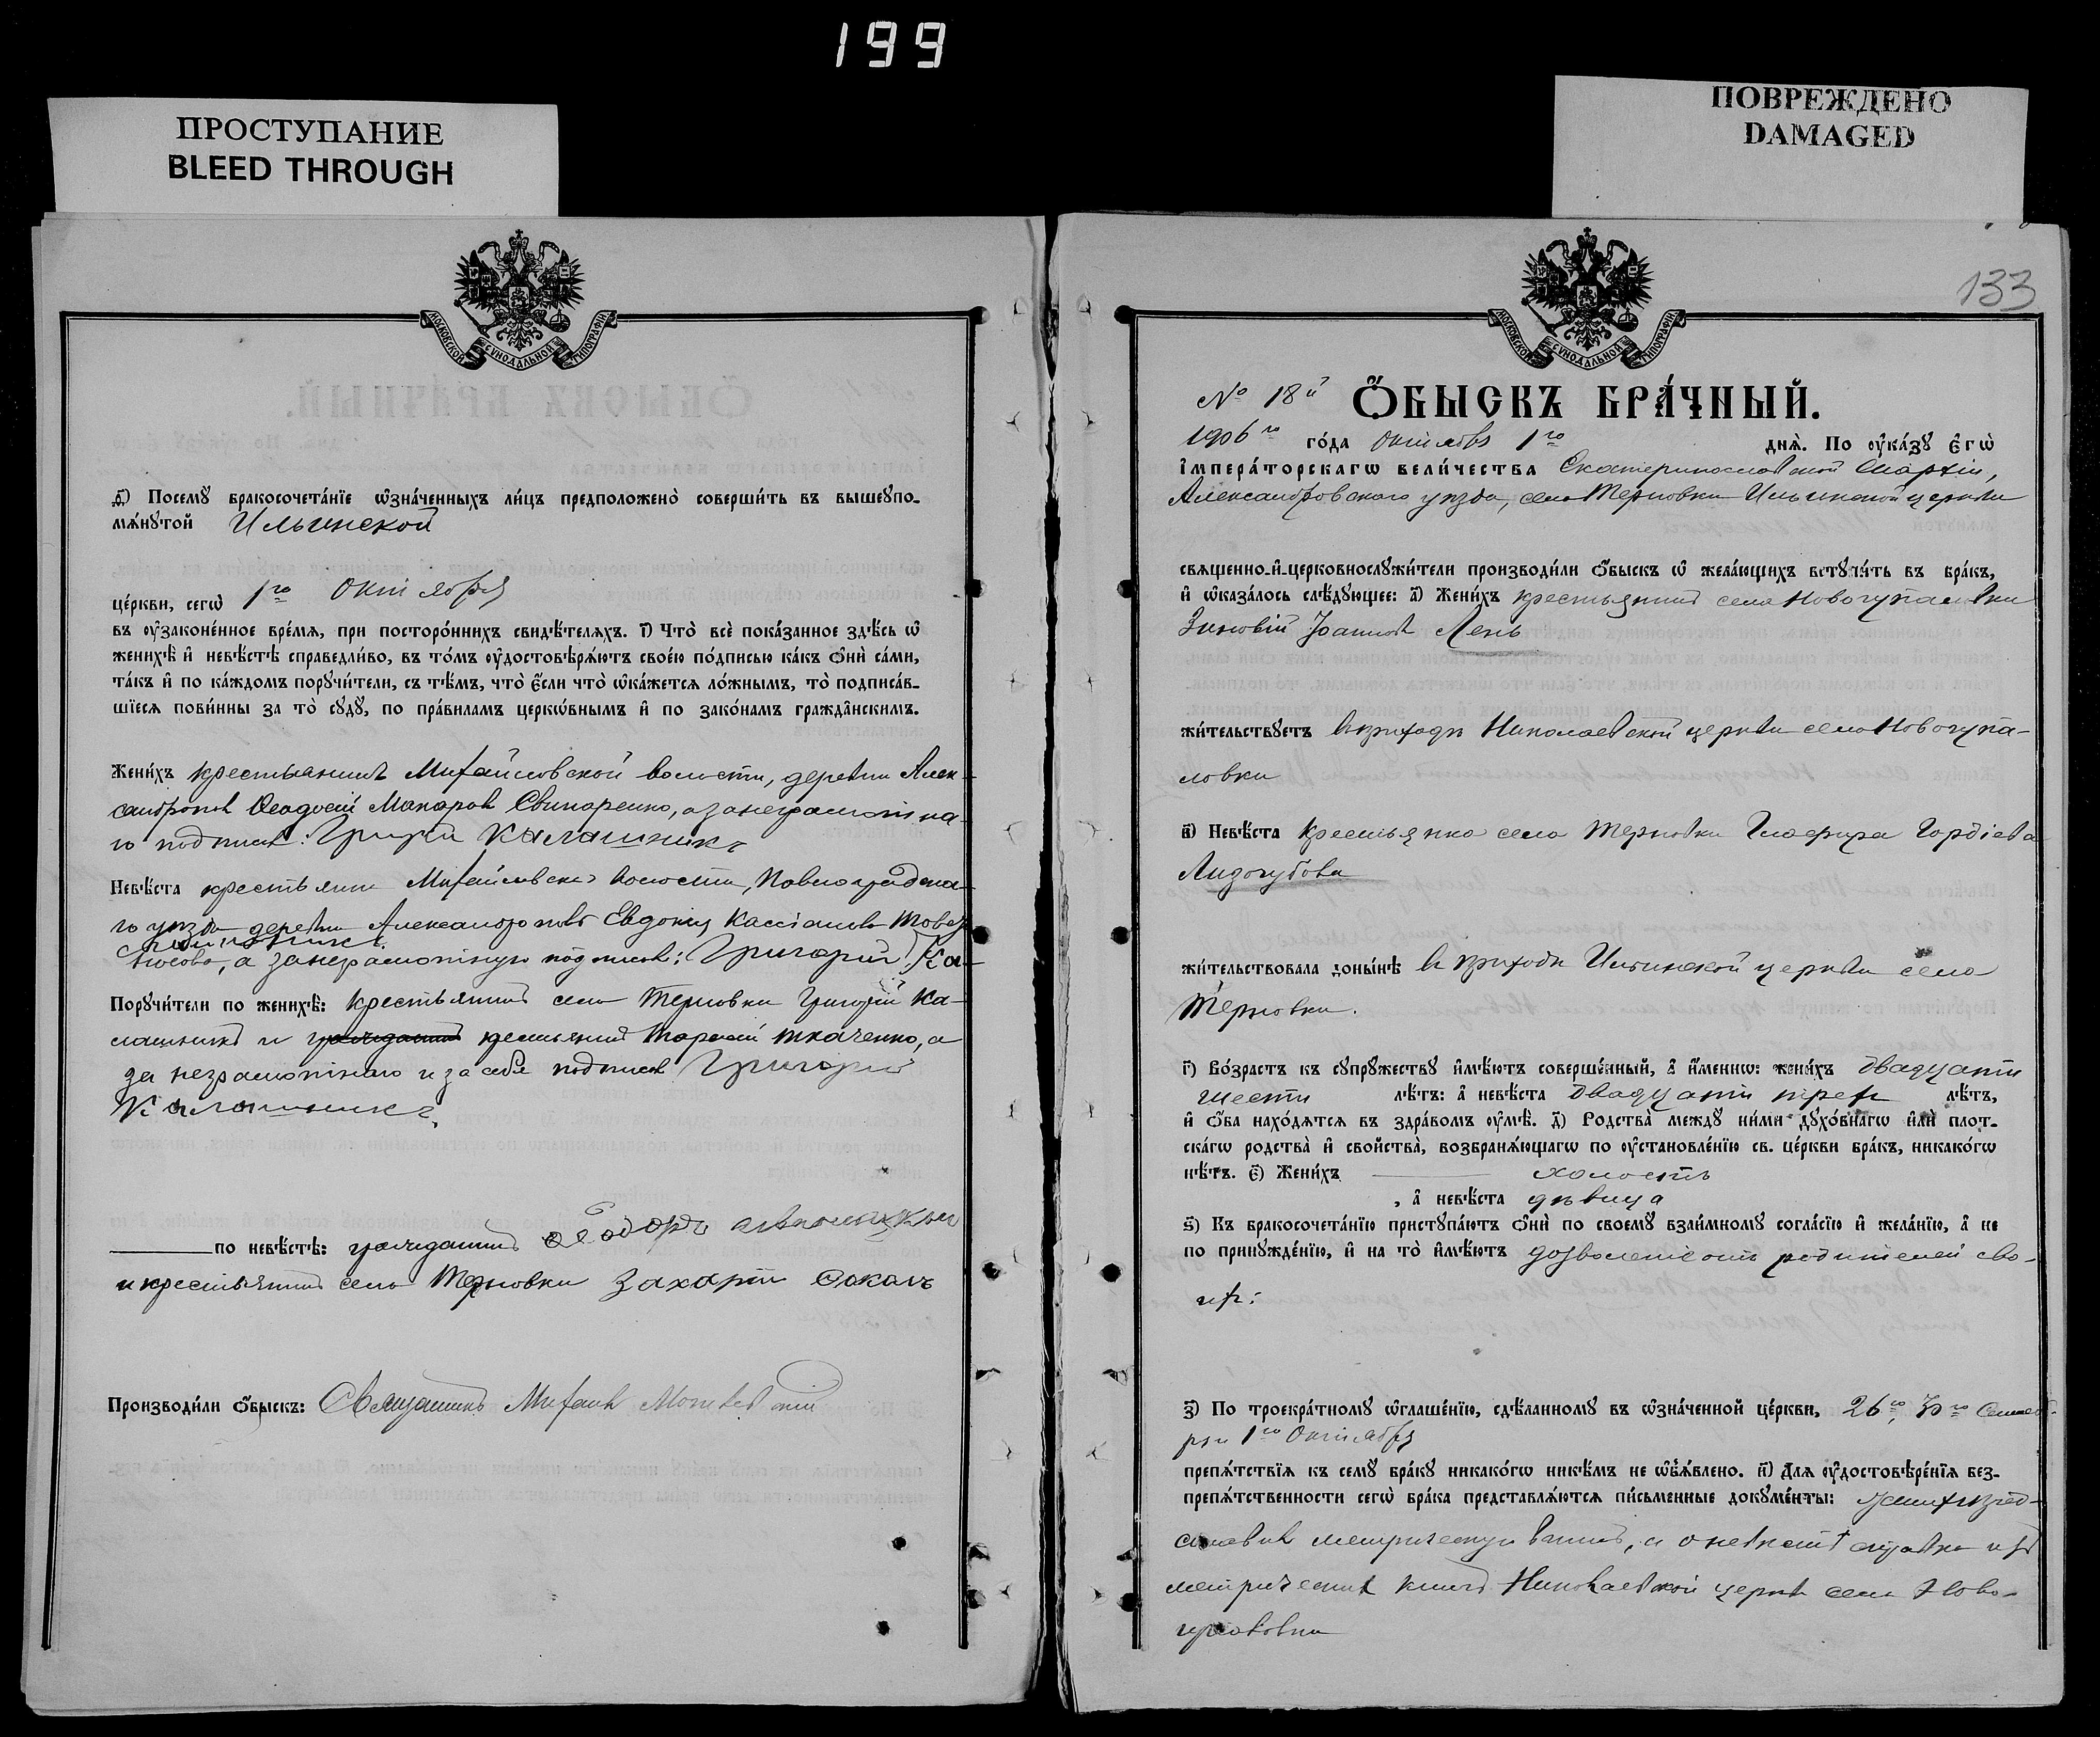 199
ПРОСТУПАНИЕ
BLEED THROUGH
МОСКОВСКОЙ СѴНОДАЛЬНОЙ ТИПОГРАФІИ
д҃) Посемꙋ бракосочета́нїе ѡзна́ченныхъ ли́цъ предположено̀ соверши́ть въ вышеупо-
мѧ́нꙋтой Ильинской
це́ркви, сегѡ̀ 1го Октября
въ ᲂу҆законе́нное вре́мѧ, при посторо́ннихъ свидѣ́телѧхъ. і҃) Что̀ всѐ пока́занное здѣ́сь ѡ҆
женихѣ̀ и҆ невѣ́стѣ справедли́во, въ то́мъ ᲂу҆достовѣрѧ́ютъ свое́ю по́дписью ка́къ ѻ҆нѝ са́ми,
та́къ и҆ по ка́ждомъ порꙋчи́тели, съ тѣ́мъ, что̀ є҆́сли что̀ ѡ҆ка́жетсѧ ло́жнымъ, то̀ подписа́в-
шїесѧ пови́нны за то̀ сꙋдꙋ̀, по пра́виламъ церкѡ́внымъ и҆ по зако́намъ гражда̂нскимъ.
Жени́хъ крестьянинъ Михайловской волости, деревни Алек-
сандрополь Ѳеодосій Макаровъ Свинаренко, а за неграмотна-
го подписъ: Григрй Калашникъ
Невѣ́ста крестьянка Михайловской волости, Павлоградска-
го уѣзда деревни Александрополь Евдокія Кассіанова
а за неграмотную подписалъ: Григорій Ка-
лашникъ.
Порꙋчи́тели по женихѣ̀: Крестьянинъ села Терновки Григорій Ка-
лашникъ и крестьянинъ Тарасій Ткаченко, а
за неграмотнаго и за себя подписалъ Григорій
Калашникъ
по невѣ́стѣ: гражданинъ Ѳеодоръ
и крестьянинъ села Терновки Захарій Соколъ
Производи́ли ѻ҆́быскъ: Священникъ Михаилъ
ПОВРЕЖДЕНО
DAMAGED
133
МОСКОВСКОЙ СѴНОДАЛЬНОЙ ТИПОГРАФІИ
№ 18й Ѻ҆́БЫСКЪ БРА́ЧНЫЙ.
1906го го́да Октября 1го днѧ̀. По ᲂу҆ка́зꙋ є҆гѡ̀
і҆мпера́торскагѡ вели́чества Екатеринославской Епархіи,
Александровскаго уѣзда, села Терновки Ильинской церкви
свѧщенно-и҆-церковнослꙋжи́тели производи́ли ѻ҆́быскъ ѡ҆ жела́ющихъ встꙋпи́ть въ бра́къ,
и҆ ѡ҆каза́лось слѣ́дꙋющее: а҃) Жени́хъ крестьянинъ села Новогупаловки
Зиновій Іоанновъ Лень
жи́тельствꙋетъ въ приходѣ Николаевской церкви села Новогупа-
ловки
в҃) Невѣ́ста крестьянка села Терновки Глафира Гордіева
Лизогубова
жи́тельствовала доны́нѣ въ приходѣ Ильинской церкви села
Терновки.
г҃) Во́зрастъ къ сꙋпрꙋ́жествꙋ и҆мѣ́ютъ соверше́нный, а҆ и҆́менно: жени́хъ двадцати
шести лѣ́тъ: а҆ невѣ́ста двадцати трехъ лѣ́тъ,
и҆ ѻ҆́ба нахо́дѧтсѧ въ здра́вомъ ᲂу҆мѣ̀. д҃) Родства̀ междꙋ̀ ни́ми дꙋхо́внагѡ и҆лѝ плот-
ска́гѡ родства̀ и҆ свойства̀, возбранѧ́ющагѡ по ᲂу҆становле́нїю св. це́ркви бра́къ, никако́гѡ
нѣ́тъ. є҃) Жени́хъ холостъ
, а҆ невѣ́ста дѣвица
ѕ҃) Къ бракосочета́нїю пристꙋпа́ютъ ѻ҆нѝ по своемꙋ̀ взаи́мномꙋ согла́сїю и҆ жела́нїю, а҆ не
по принꙋжде́нїю, и҆ на то̀ и҆мѣ́ютъ дозволеніе отъ родителей сво-
ихъ:
з҃) По троекра́тномꙋ ѡ҆глаше́нїю, сдѣ́ланномꙋ въ ѡ҆зна́ченной це́ркви, 26го, 30го Сентяб-
ря и 1го Октября
препѧ́тствїѧ къ семꙋ̀ бра́кꙋ никако́гѡ никѣ́мъ не ѡ҆б̾ѧ́влено. и҃) Длѧ ᲂу҆достовѣре́нїѧ без-
препѧ́тственности сегѡ̀ бра́ка представлѧ́ютсѧ пи́сьменные докꙋме́нты: Женихъ пред-
ставилъ метрическую выпись, а о невѣстѣ справка изъ
метрическихъ книгъ Николаевской церкви села Ново-
гупаловки